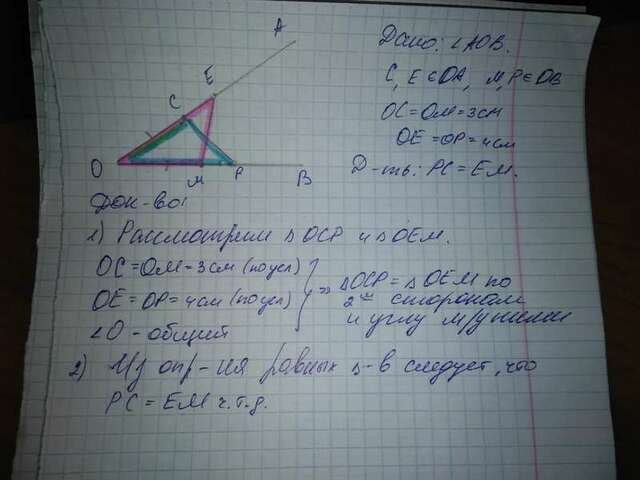 A
E
C
O
M
P
B
Дано: ∠AOB.
C, E ∈ OA, M, P ∈ OB
OC = OM = 3 см
OE = OP = 4 см
Д-ть: PC = EM.
Док-во:
1) Рассмотрим △OCP и △OEM.
OC = OM = 3 см (по усл)
OE = OP = 4 см (по усл)
∠O - общий
=> △OCP = △OEM по
2ум сторонам
и углу м/у ними
2) Из опр-ия равных △-в следует, что
PC = EM ч.т.д.